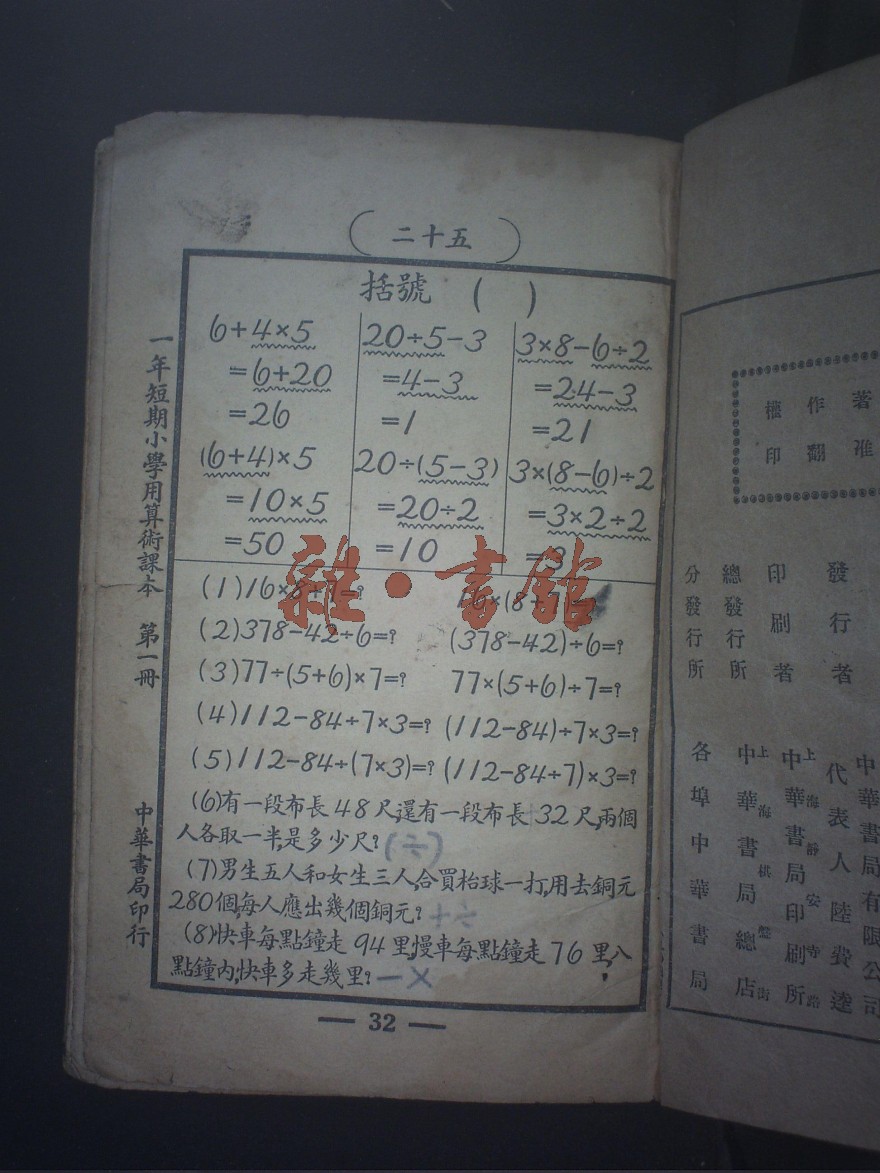 (二十五)
括號 ( )
6+4×5
=6+20
=26
20÷5-3
=4-3
=1
3×8-6÷2
=24-3
=21
(6+4)×5
=10×5
=50
20÷(5-3)
=20÷2
=10
3×(8-6)÷2
=3×2÷2
=3
(2)378-42÷6=? (378-42)÷6=?
(3)77÷(5+6)×7=? 77×(5+6)÷7=?
(4)112-84÷7×3=? (112-84)÷7×3=?
(5)112-84÷(7×3)=? (112-84÷7)×3=?
(6)有一段布長48尺,還有一段布長32尺,兩個
人各取一半,是多少尺? (÷)
(7)男生五人和女生三人,合買枱球一打,用去銅元
280個,每人應出幾個銅元? ÷+
(8)快車每點鐘走94里,慢車每點鐘走76里,八
點鐘內,快車多走幾里? ×-
— 32 —
一年短期小學用算術課本 第一冊
中華書局印行
雜·書館
著
作
權
准
翻
印
發行者
印刷者
總發行所
分發行所
中華書局有限公司
代表人陸費逵
上海靜安寺路
中華書局印刷所
上海棋盤街
中華書局總店
各埠中華書局